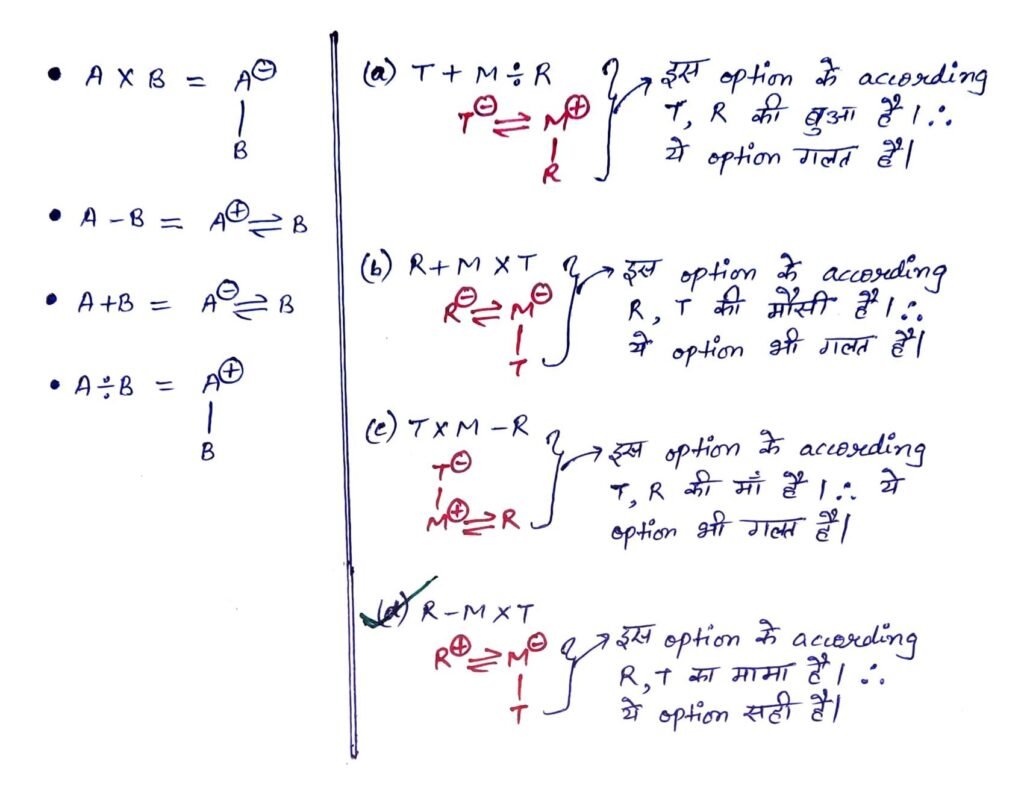 • A × B = A⊖
|
B
• A – B = A⊕ ⇌ B
• A + B = A⊖ ⇌ B
• A ÷ B = A⊕
|
B
(a) T + M ÷ R
T⊖ ⇌ M⊕
|
R
इस option के according
T, R की बुआ है। ∴
ये option गलत है।
(b) R + M × T
R⊖ ⇌ M⊖
|
T
इस option के according
R, T की मौसी है। ∴
ये option भी गलत है।
(c) T × M – R
T⊖
|
M⊕ ⇌ R
इस option के according
T, R की माँ है। ∴ ये
option भी गलत है।
(d) R – M × T
R⊕ ⇌ M⊖
|
T
इस option के according
R, T का मामा है। ∴
ये option सही है।